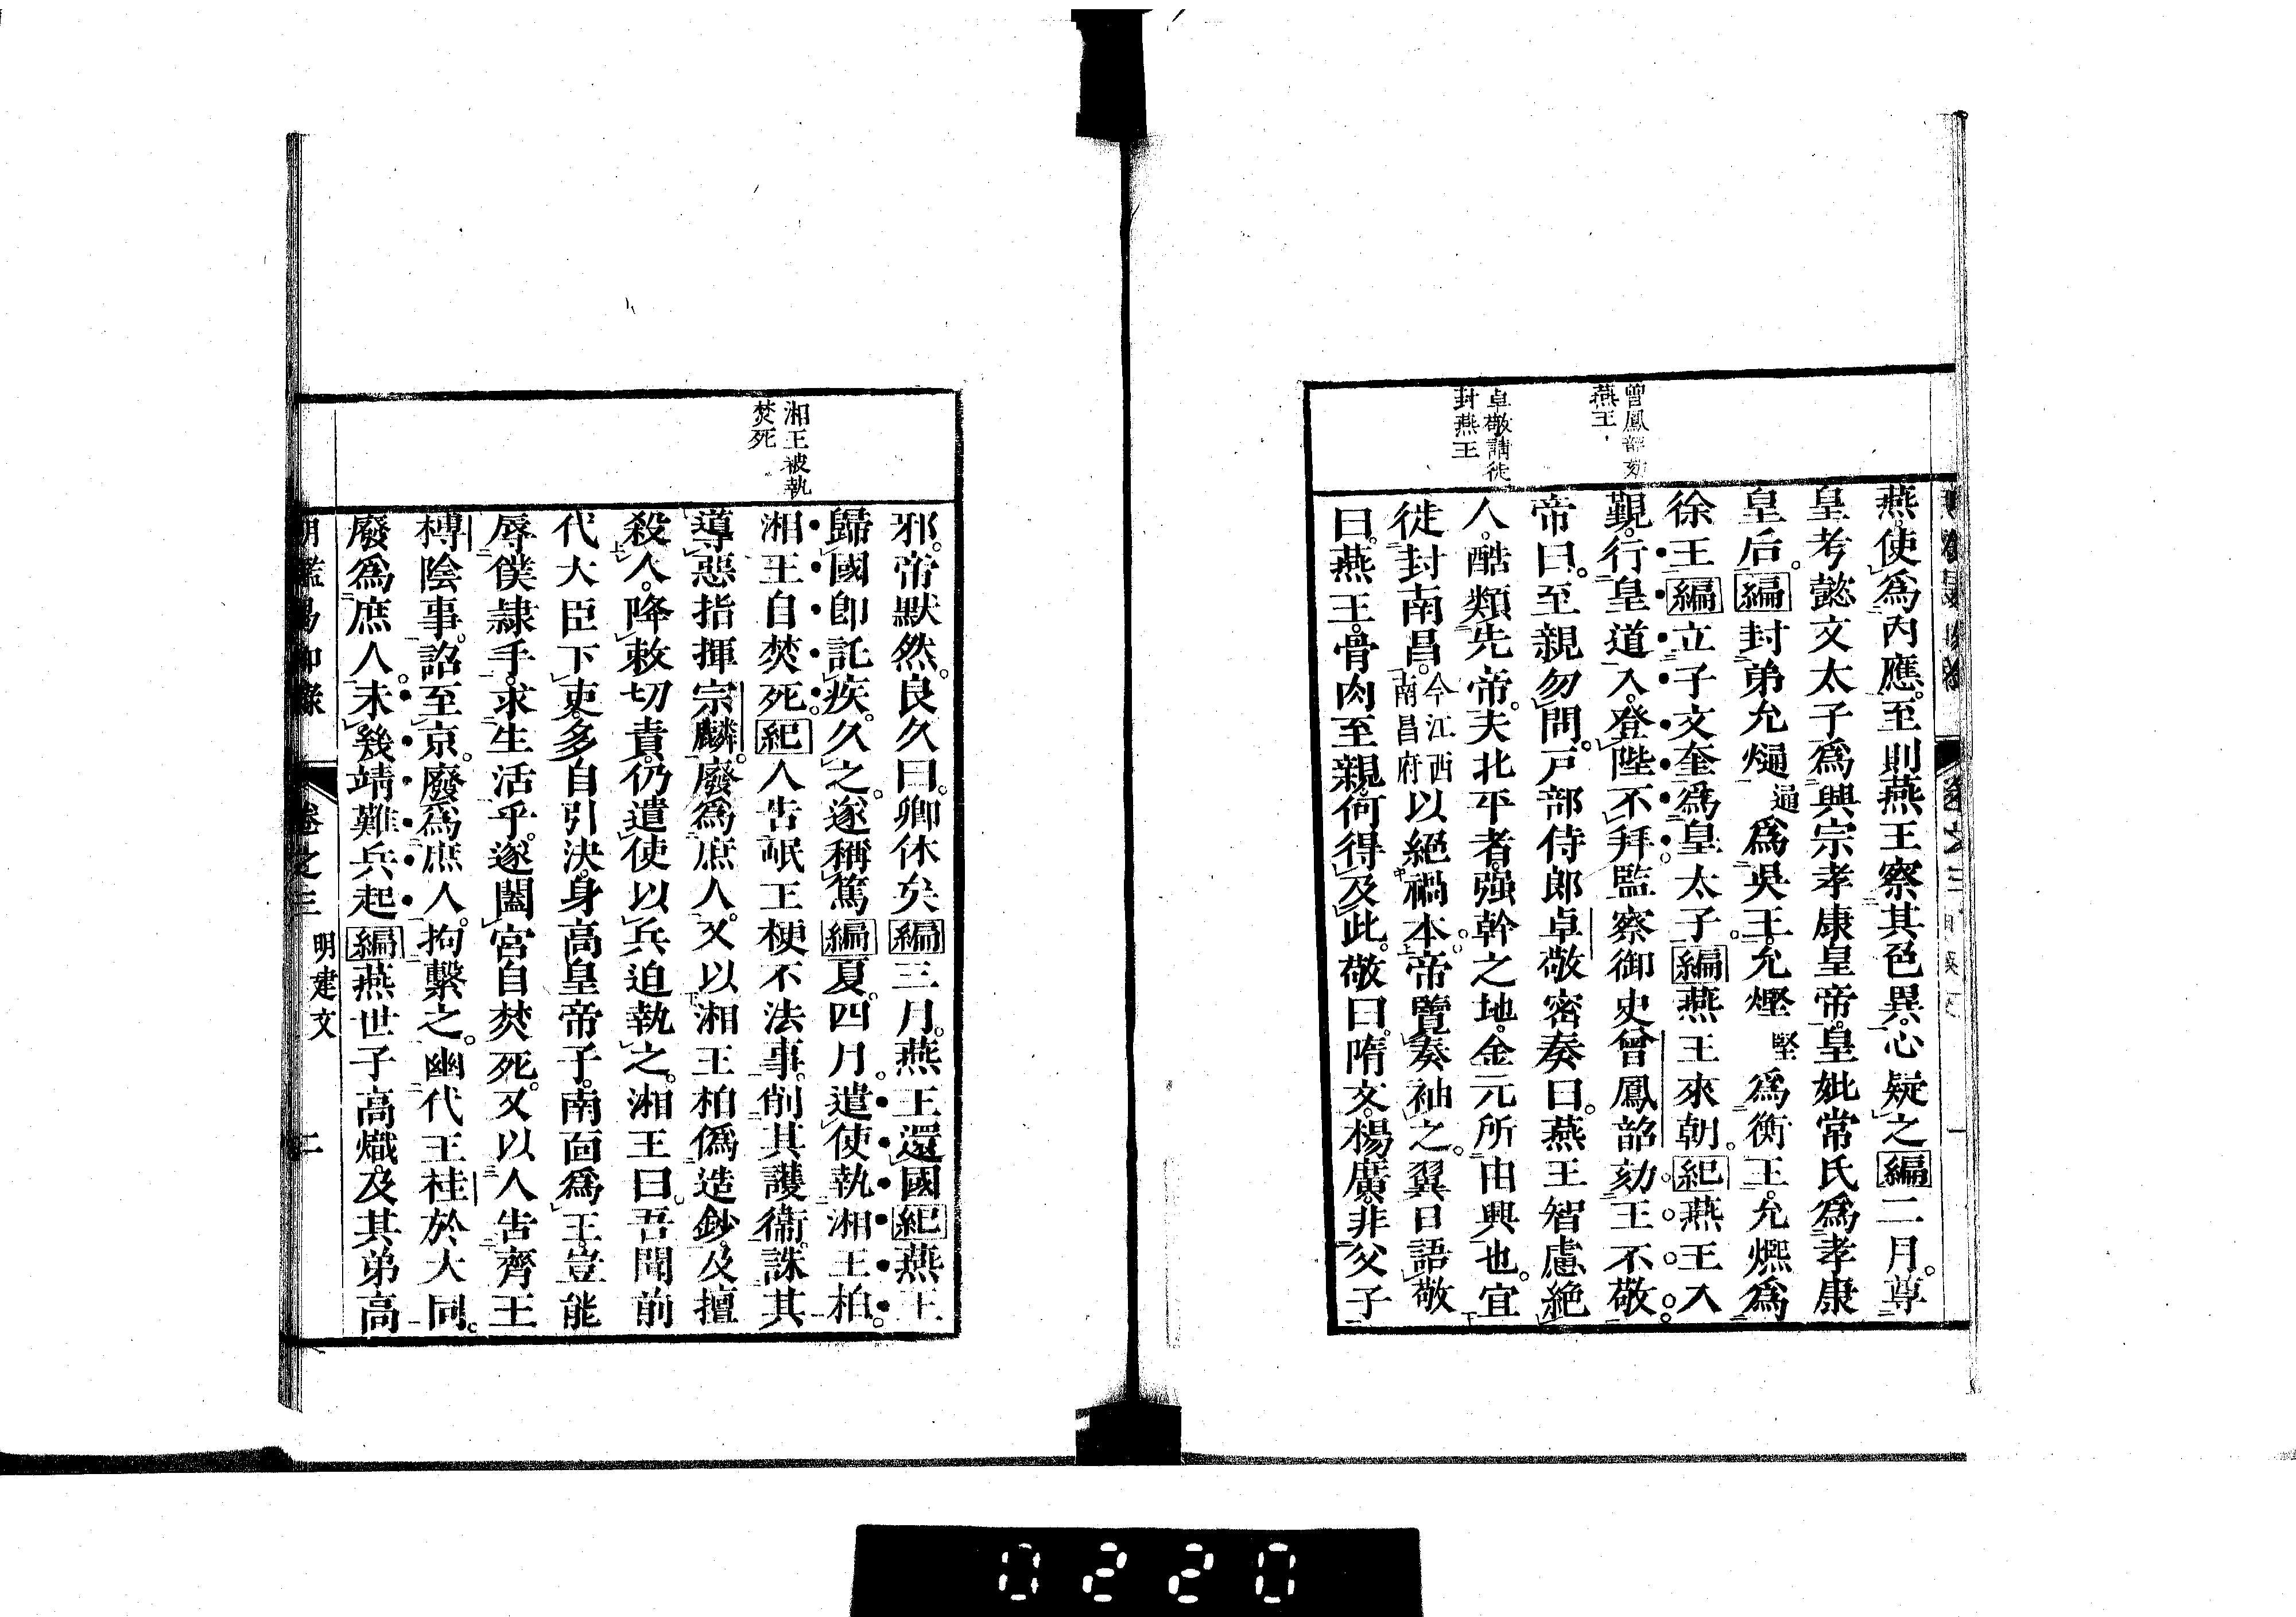 曾鳳韶劾
燕王
卓敬請徙
封燕王
燕使爲內應。至則燕王察其色異。心疑之編二月。尊
皇考懿文太子爲興宗孝康皇帝。皇妣常氏爲孝康
皇后。編封弟允熥通爲吳王。允熞堅爲衡王。允熙爲
徐王編立子文奎爲皇太子。編燕王來朝。紀燕王入
覲。行皇道入。登陛不拜監察御史曾鳳韶劾王不敬
帝曰。至親勿問。戶部侍郎卓敬密奏曰。燕王智慮絶
人。酷類先帝。夫北平者。强幹之地。金元所由興也。宜
徙封南昌。今江西南昌府以絕禍本。帝覽奏袖之。翼日語敬
曰。燕王。骨肉至親。何得及此。敬曰。隋文。楊廣。非父子
湘王被執
焚死
邪。帝默然。良久曰。卿休矣編三月。燕王還國紀燕王
歸國卽託疾。久之。遂稱篤編夏。四月。遣使執湘王柏。
湘王自焚死。紀人告岷王梗不法事。削其護衞。誅其
導惡指揮宗麟。廢爲庶人。又以湘王柏僞造鈔。及擅
殺人。降敕切責。仍遣使以兵迫執之。湘王曰。吾聞前
代大臣下吏。多自引決。身高皇帝子。南面爲王。豈能
辱僕隷手。求生活乎。遂闔宮自焚死。又以人告齊王
榑陰事。詔至京。廢爲庶人。拘繫之。幽代王桂於大同。
廢爲庶人。未幾靖難兵起編燕世子高熾。及其弟高
明鑑易知錄 卷之三 明建文 二
0220